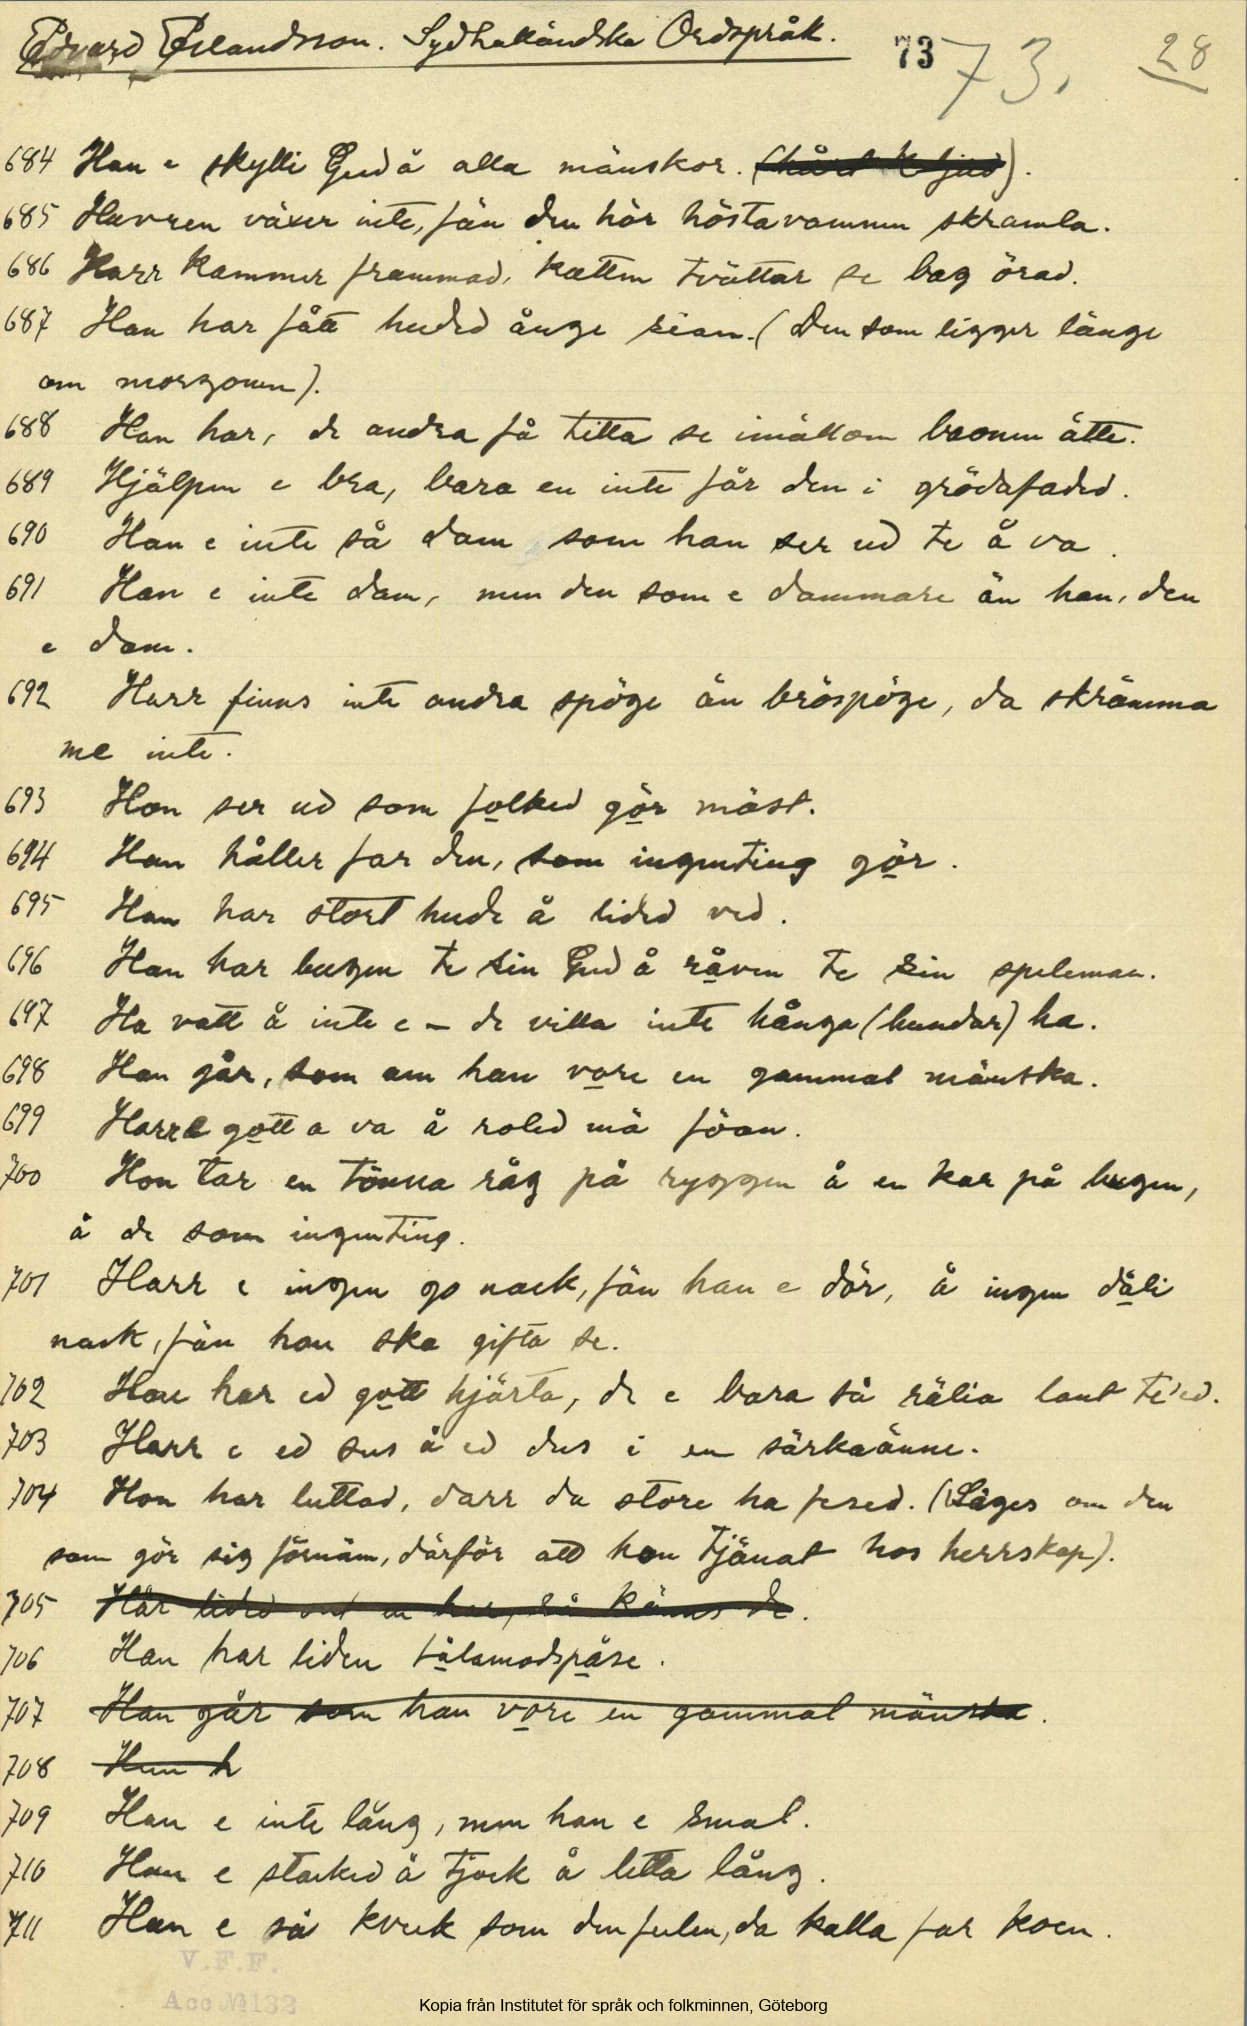 Edvard Erlandsson. Sydhalländska Ordspråk. 73 73. 28
684 Han e skylli Gud å alla mänskor.
685 Havren växer inte, fän den hör höstavamnen skramla.
686 Harr kammer frammad, katten tvättar se bag örad.
687 Han har fått huded ånge sian. (Den som ligger länge
om morgonen).
688 Han har, de andra få titta se imällom baonen ätte.
689 Hjälpen e bra, bara en inte får den i grödafaded.
690 Han e inte så dam som han ser ud te å va.
691 Han e inte dam, men den som e dammare än han, den
e dam.
692 Harr finns inte andra spöge än bröspöge, da skrämma
me inte.
693 Hon ser ud som folked gör mäst.
694 Han håller far den, som ingenting gör.
695 Han har stort hude å lided ved.
696 Han har bugen te sin Gud å råven te sin speleman.
697 Ha vatt å inte e - de villa inte hånga (hundar) ha.
698 Han går, som am han vore en gammal mänska.
699 Harr e gott a va å roled mä föan.
700 Hon tar en tönna råg på ryggen å en kar på bugen,
å de som ingenting.
701 Harr e ingen go nack, fän han e dör, å ingen dåli
nack, fän han ska gifta se.
702 Hon har ed gott hjärta, de e bara så rälia lant te'ed.
703 Harr e ed sus å ed dus i en särkaänne.
704 Hon har luttad, darr da store ha fesed. (Säges om den
som gör sig förnäm, därför att hon tjänat hos herrskap).
705 Hår lided ont en har, så käns de.
706 Han har liden tålamodspåse.
707 Han går som han vore en gammal mänska.
708 Hun h
709 Han e inte lång, men han e smal.
710 Han e stacked å tjock å letta lång.
711 Han e så kveck som den fulen, da kalla far koen.
V.F.F.
Acc № 132
Kopia från Institutet för språk och folkminnen, Göteborg